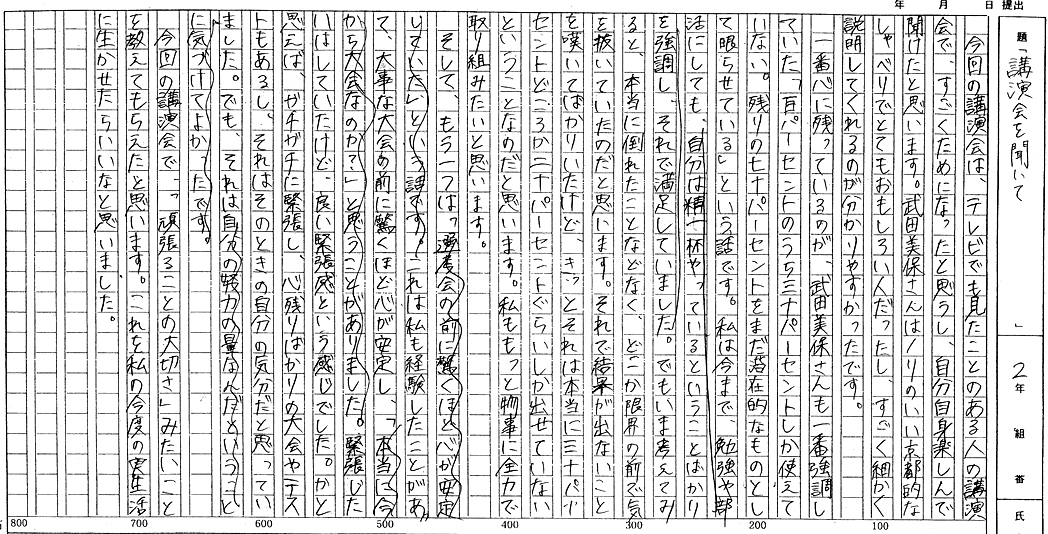 年 月 日提出
題「講演会を聞いて」
2年 組 番 氏
今回の講演会は、テレビでも見たことのある人の講演
会で、すごくためになったと思うし、自分自身楽しんで
聞けたと思います。武田美保さんはノリのいい京都的な
しゃべりでとてもおもしろい人だったし、すごく細かく
説明してくれるのが分かりやすかったです。
一番心に残っているのが、武田美保さんも一番強調し
ていた「百パーセントのうち三十パーセントしか使えて
いない。残りの七十パーセントをまだ潜在的なものとし
て眠らせている」という話です。私は今まで、勉強や部
活にしても、自分は精一杯やっているということばかり
を強調し、それで満足していました。でもいま考えてみ
ると、本当に倒れたことなどなく、どこか限界の前で気
を抜いていたのだと思います。それで結果が出ないこと
を嘆いてばかりいたけど、きっとそれは本当に三十パー
セントどころか二十パーセントぐらいしか出せていない
ということなのだと思います。私ももっと物事に全力で
取り組みたいと思います。
そして、もう一つは「選考会の前に驚くほど心が安定
していた」という話です。これは私も経験したことがあっ
て、大事な大会の前に驚くほど心が安定し、「本当に今
から大会なのか？」と思うことがありました。緊張じた
いはしていたけど、良い緊張感という感じでした。かと
思えば、ガチガチに緊張し、心残りばかりの大会やテス
トもあるし、それはそのときの自分の気分だと思ってい
ました。でも、それは自分の努力の量なんだということ
に気づけてよかったです。
今回の講演会で、「頑張ることの大切さ」みたいなこと
を教えてもらえたと思います。これを私の今度の実生活
に生かせたらいいなと思いました。
100
200
300
400
500
600
700
800